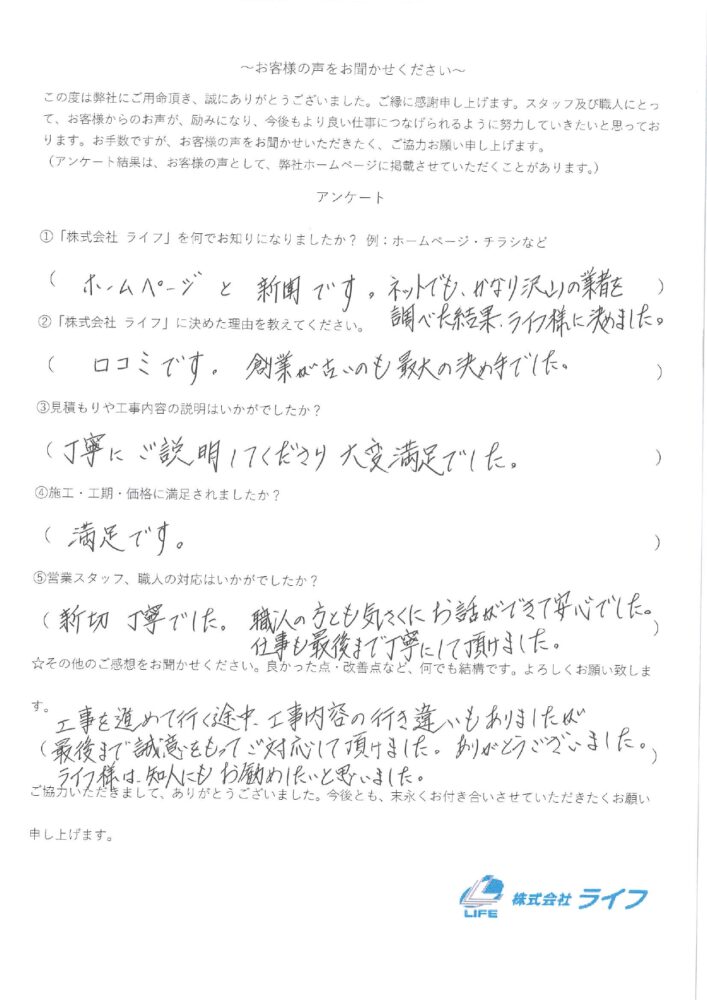 ～お客様の声をお聞かせください～
この度は弊社にご用命頂き、誠にありがとうございました。ご縁に感謝申し上げます。スタッフ及び職人にとっ
て、お客様からのお声が、励みになり、今後もより良い仕事につなげられるように努力していきたいと思ってお
ります。お手数ですが、お客様の声をお聞かせいただきたく、ご協力お願い申し上げます。
（アンケート結果は、お客様の声として、弊社ホームページに掲載させていただくことがあります。）
アンケート
①「株式会社 ライフ」を何でお知りになりましたか？ 例：ホームページ・チラシなど
（ ホームページ と 新聞 です。ネットでも、かなり沢山の業者を ）
調べた結果、ライフ様に決めました。
②「株式会社 ライフ」に決めた理由を教えてください。
（ 口コミです。 創業が古いのも最大の決め手でした。 ）
③見積もりや工事内容の説明はいかがでしたか？
（丁寧に ご説明してくださり 大変満足でした。 ）
④施工・工期・価格に満足されましたか？
（ 満足です。 ）
⑤営業スタッフ、職人の対応はいかがでしたか？
（新切 丁寧でした。 職人の方とも気さくに お話ができて安心でした。）
仕事も最後まで丁寧にして頂けました。
☆その他のご感想をお聞かせください。良かった点・改善点など、何でも結構です。よろしくお願い致しま
す。
工事を進めて行く途中、工事内容の行き違いもありましたが
（最後まで誠意をもってご対応して頂けました。ありがとうございました。）
ライフ様は、知人にも お勧めしたいと思いました。
ご協力いただきまして、ありがとうございました。今後とも、末永くお付き合いさせていただきたくお願い
申し上げます。
LIFE 株式会社 ライフ